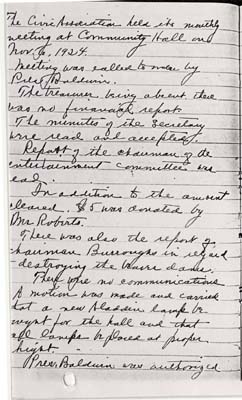 The Civic Association held its monthly
meeting at Community Hall on
Nov. 6, 1924.
Meeting was called to order by
Pres. Baldwin.
The treasurer being absent there
was no financial report.
The minutes of the Secretary
were read and accepted.
Report of the chairman of the
entertainment committee was
read.
In addition to the amount
cleared, $5 was donated by
Mr. Roberts.
There was also the report of
chairman Burroughs in regard
destroying the dams.
There were no communications
A motion was made and carried
that a new Aladdin lamp be
bought for the hall and that
all lamps be placed at proper
height.
Pres. Baldwin was authorized